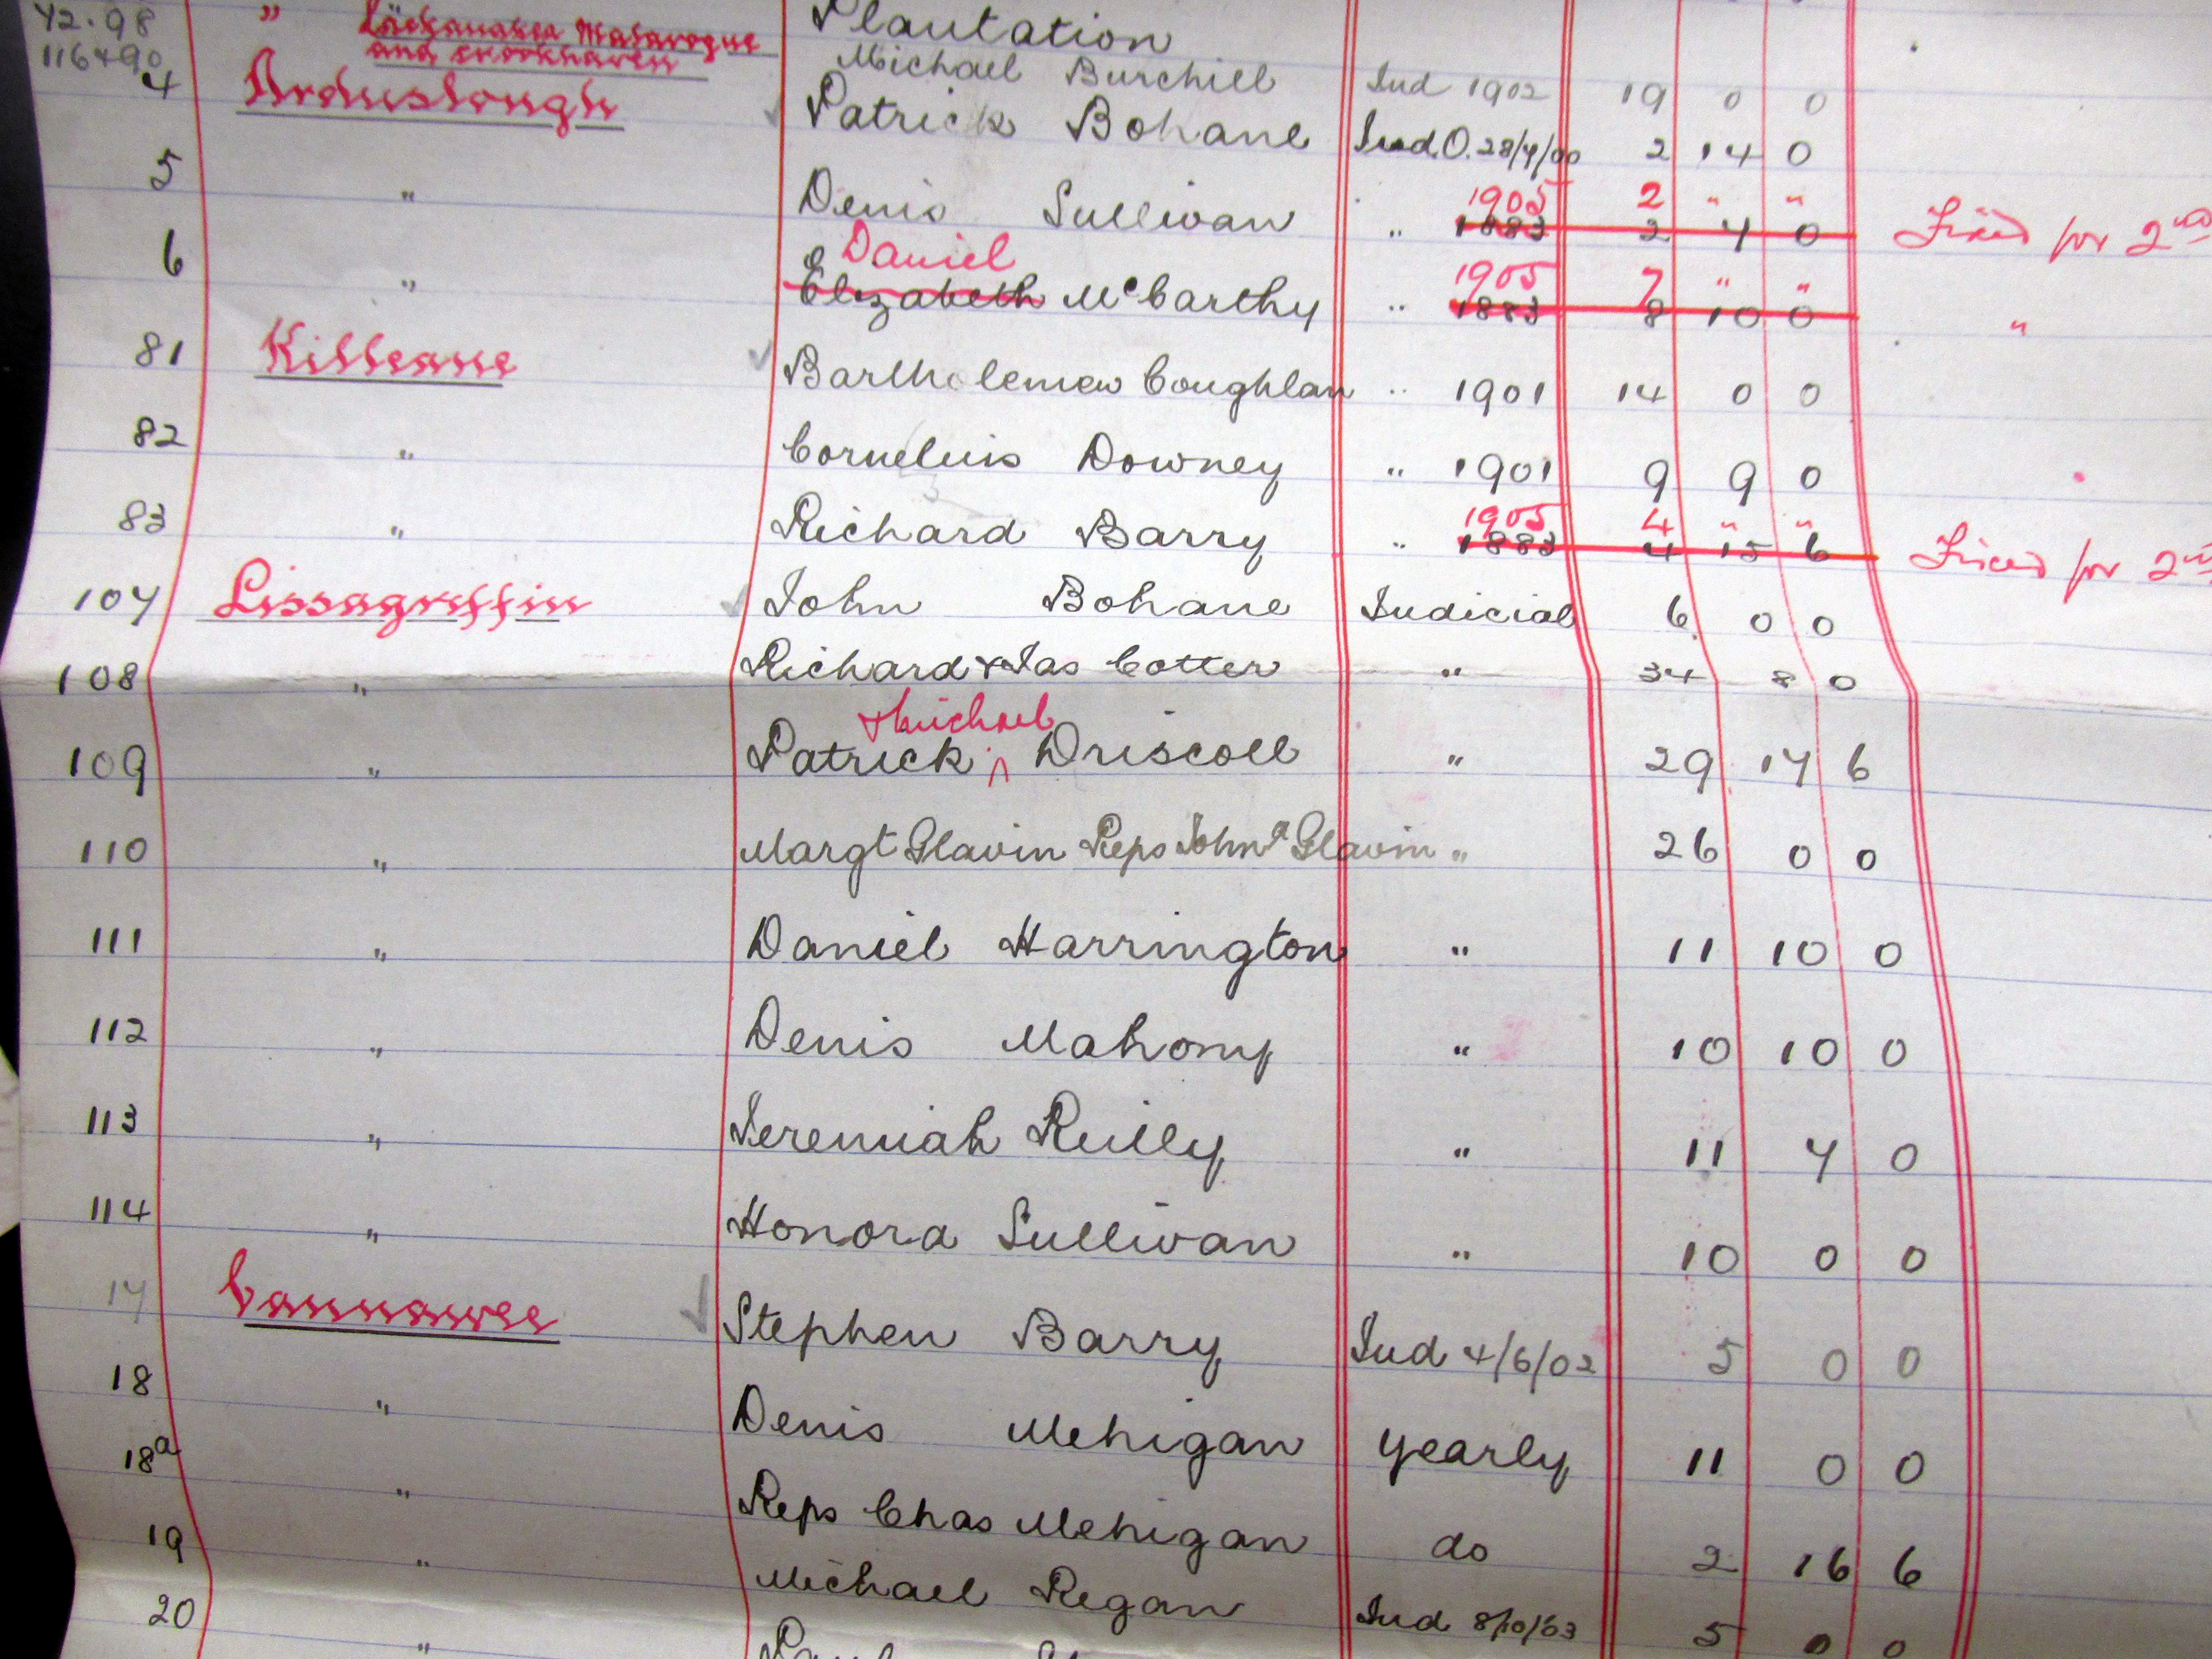 72.98 " Lackanakea Mallavogue Plantation
116 & 90 and Crookhaven
4 Arduslough Michael Burchill Jud 1902 19 0 0
5 " Patrick Bohane Jud.O. 28/7/00 2 14 0
1905 2 " "
6 " Denis Sullivan " 1883 2 4 0 Fixed for 2nd
Daniel 1905 7 " "
Elizabeth McCarthy " 1883 8 10 0 "
81 Killeane Bartholemew Coughlan " 1901 14 0 0
82 " Cornelius Downey " 1901 9 9 0
1905 4 " "
83 " Richard Barry " 1883 4 15 6 Fixed for 2nd
107 Lissagriffin John Bohane Judicial 6 0 0
108 " Richard & Jas Cotter " 34 8 0
& Michael
109 " Patrick ^ Driscoll " 29 17 6
110 " Margt Glavin Reps John Glavin " 26 0 0
111 " Daniel Harrington " 11 10 0
112 " Denis Mahony " 10 10 0
113 " Jeremiah Reilly " 11 7 0
114 " Honora Sullivan " 10 0 0
17 Cannawee Stephen Barry Jud 4/6/02 5 0 0
18 " Denis Mehigan yearly 11 0 0
18a " Reps Chas Mehigan do 2 16 6
19 " Michael Regan Jud 8/10/03 5 0 0
20 "